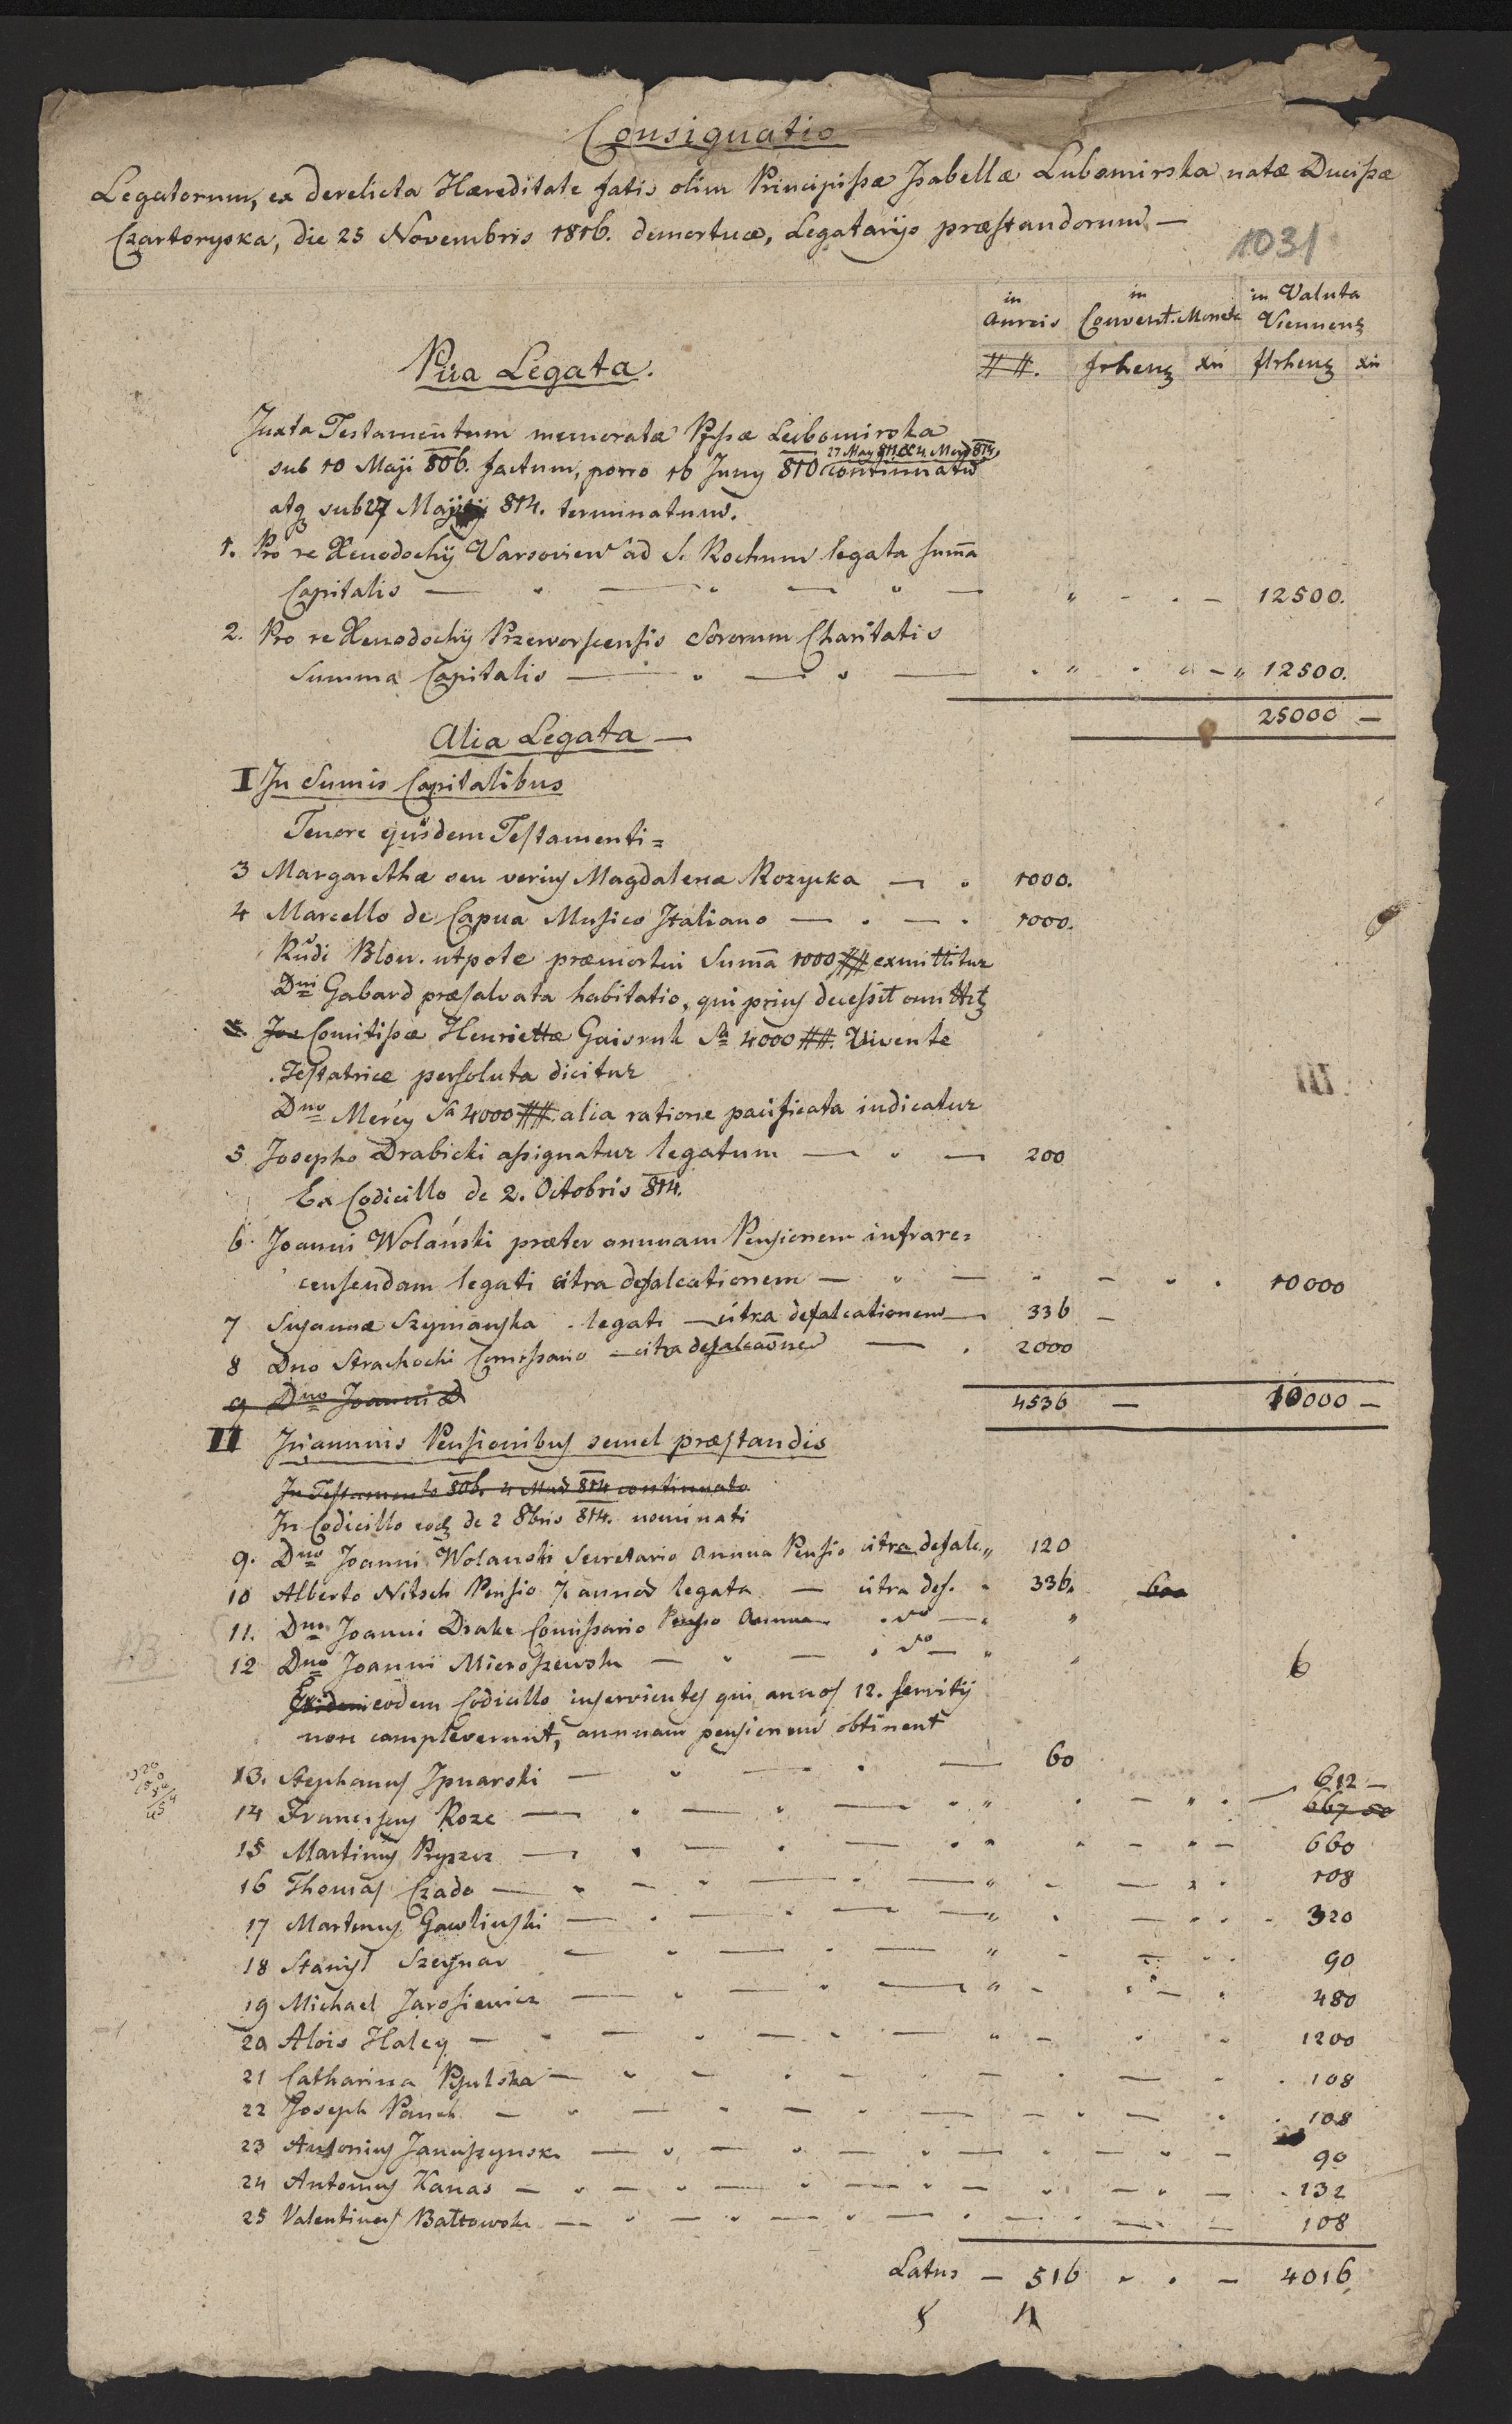 Consignatio
Legatorum, ex derelicta Hæreditate fatis olim Principissæ Isabellæ Lubomirska natæ Ducissæ
Czartoryska, die 25 Novembris 1816. demortuæ, Legatarijs præstandorum —
1031
in Aureis
in Convent. Moneta
in Valuta Viennens
##.
frhens xri
flrhens xri
Piia Legata.
Juxta Testamentum memorata Ppssæ Lubomirska
27 May 811 & 4 May 814.
sub 10 Maji 806. factum, porro 16 Juny 810 continuatum
atq sub 27 Maji 814. terminatum.
1. Pro re Xenodochij Varsovien ad S. Rochum legata summa
Capitalis — 12500.
2. Pro re Xenodochij Przeworscensis Sororum Charitatis
Summa Capitalis — 12500.
25000 —
Alia Legata —
I In Sumis Capitalibus
Tenore ejusdem Testamenti =
3 Margarethæ seu verius Magdalena Rozycka — 1000.
4 Marcello de Capua Musico Italiano — 1000.
Rudi Blou. utpote præmortui Suma 1000 ## exmittitur
Dni Gabard præsalvata habitatio, qui prius decessit omittitz
Comitissæ Henriettæ Gaisruk Sa 4000 ##. Vivente
Testatrice persoluta dicitur
Dno Mercy Sa 4000 ##. alia ratione pacificata indicatur
5 Josepho Drabicki assignatur legatum — 200
Ex Codicillo de 2. Octobris 814.
6. Joanni Wolański præter annuam Pensionem infrare=
censendam legati citra defalcationem — 10000
7 Susannæ Szymanska . legati — citra defalcationem — 336 —
8 Dno Strachocki Comissario — citra defalcaonem — 2000
9 Dno Joanni D
4536 — 10000 —
II In annuis Pensionibus semel præstandis
In Testamento 806. 4 Maij 814 continuato
In Codicillo eod de 2 8bris 814. nominati
9. Dno Joanni Wolanski Secretario Annua Pensio citra defalc 120
10 Alberto Nitsch Pensio 7 annor legata — citra def. 336. 600
11. Dno Joanni Drake Comissario Pensio Annua — do —
12 Dno Joanni Mieroszewski — do —
6
eodem Codicillo inservientes qui annos 12. servitij
non compleverunt, annuam pensionem obtinent
13. Stephanus Ipnarski — 60
612 —
14 Franciscus Roze — 667 50
15 Martinus Pryszcz — 660
16 Thomas Czado — 108
17 Martinus Gawlinski — 320
18 Stanisl Szeynar — 90
19 Michael Jarosiewicz — 480
20 Alois Haley — 1200
21 Catharina Psulska — 108
22 Joseph Panek — 108
23 Antonius Januszynsk — 90
24 Antonius Kanas — 132
25 Valentinus Bałtowski — 108
Latus — 516 — 4016